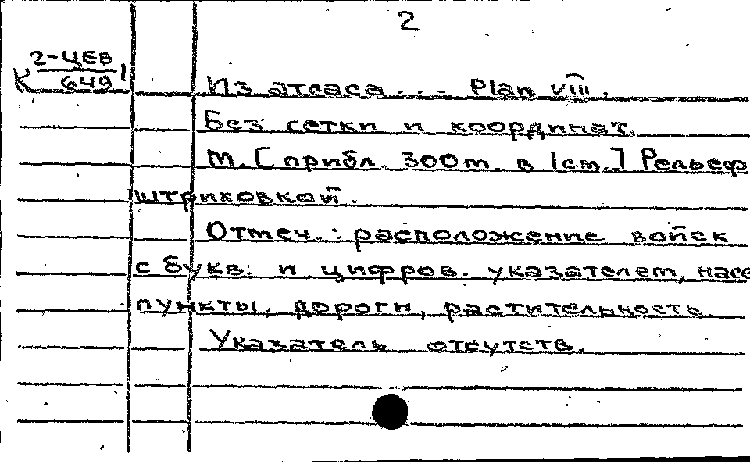 2
К 2-ЦЕВ
649
Из атласа... - Plan VIII.
Без сетки и координат.
М. [прибл. 300m в 1cm.] Рельеф
штриховкой.
Отмеч.: расположение войск
с букв. и цифров. указателем, насе
пункты, дороги, растительность.
Указатель отсутств.